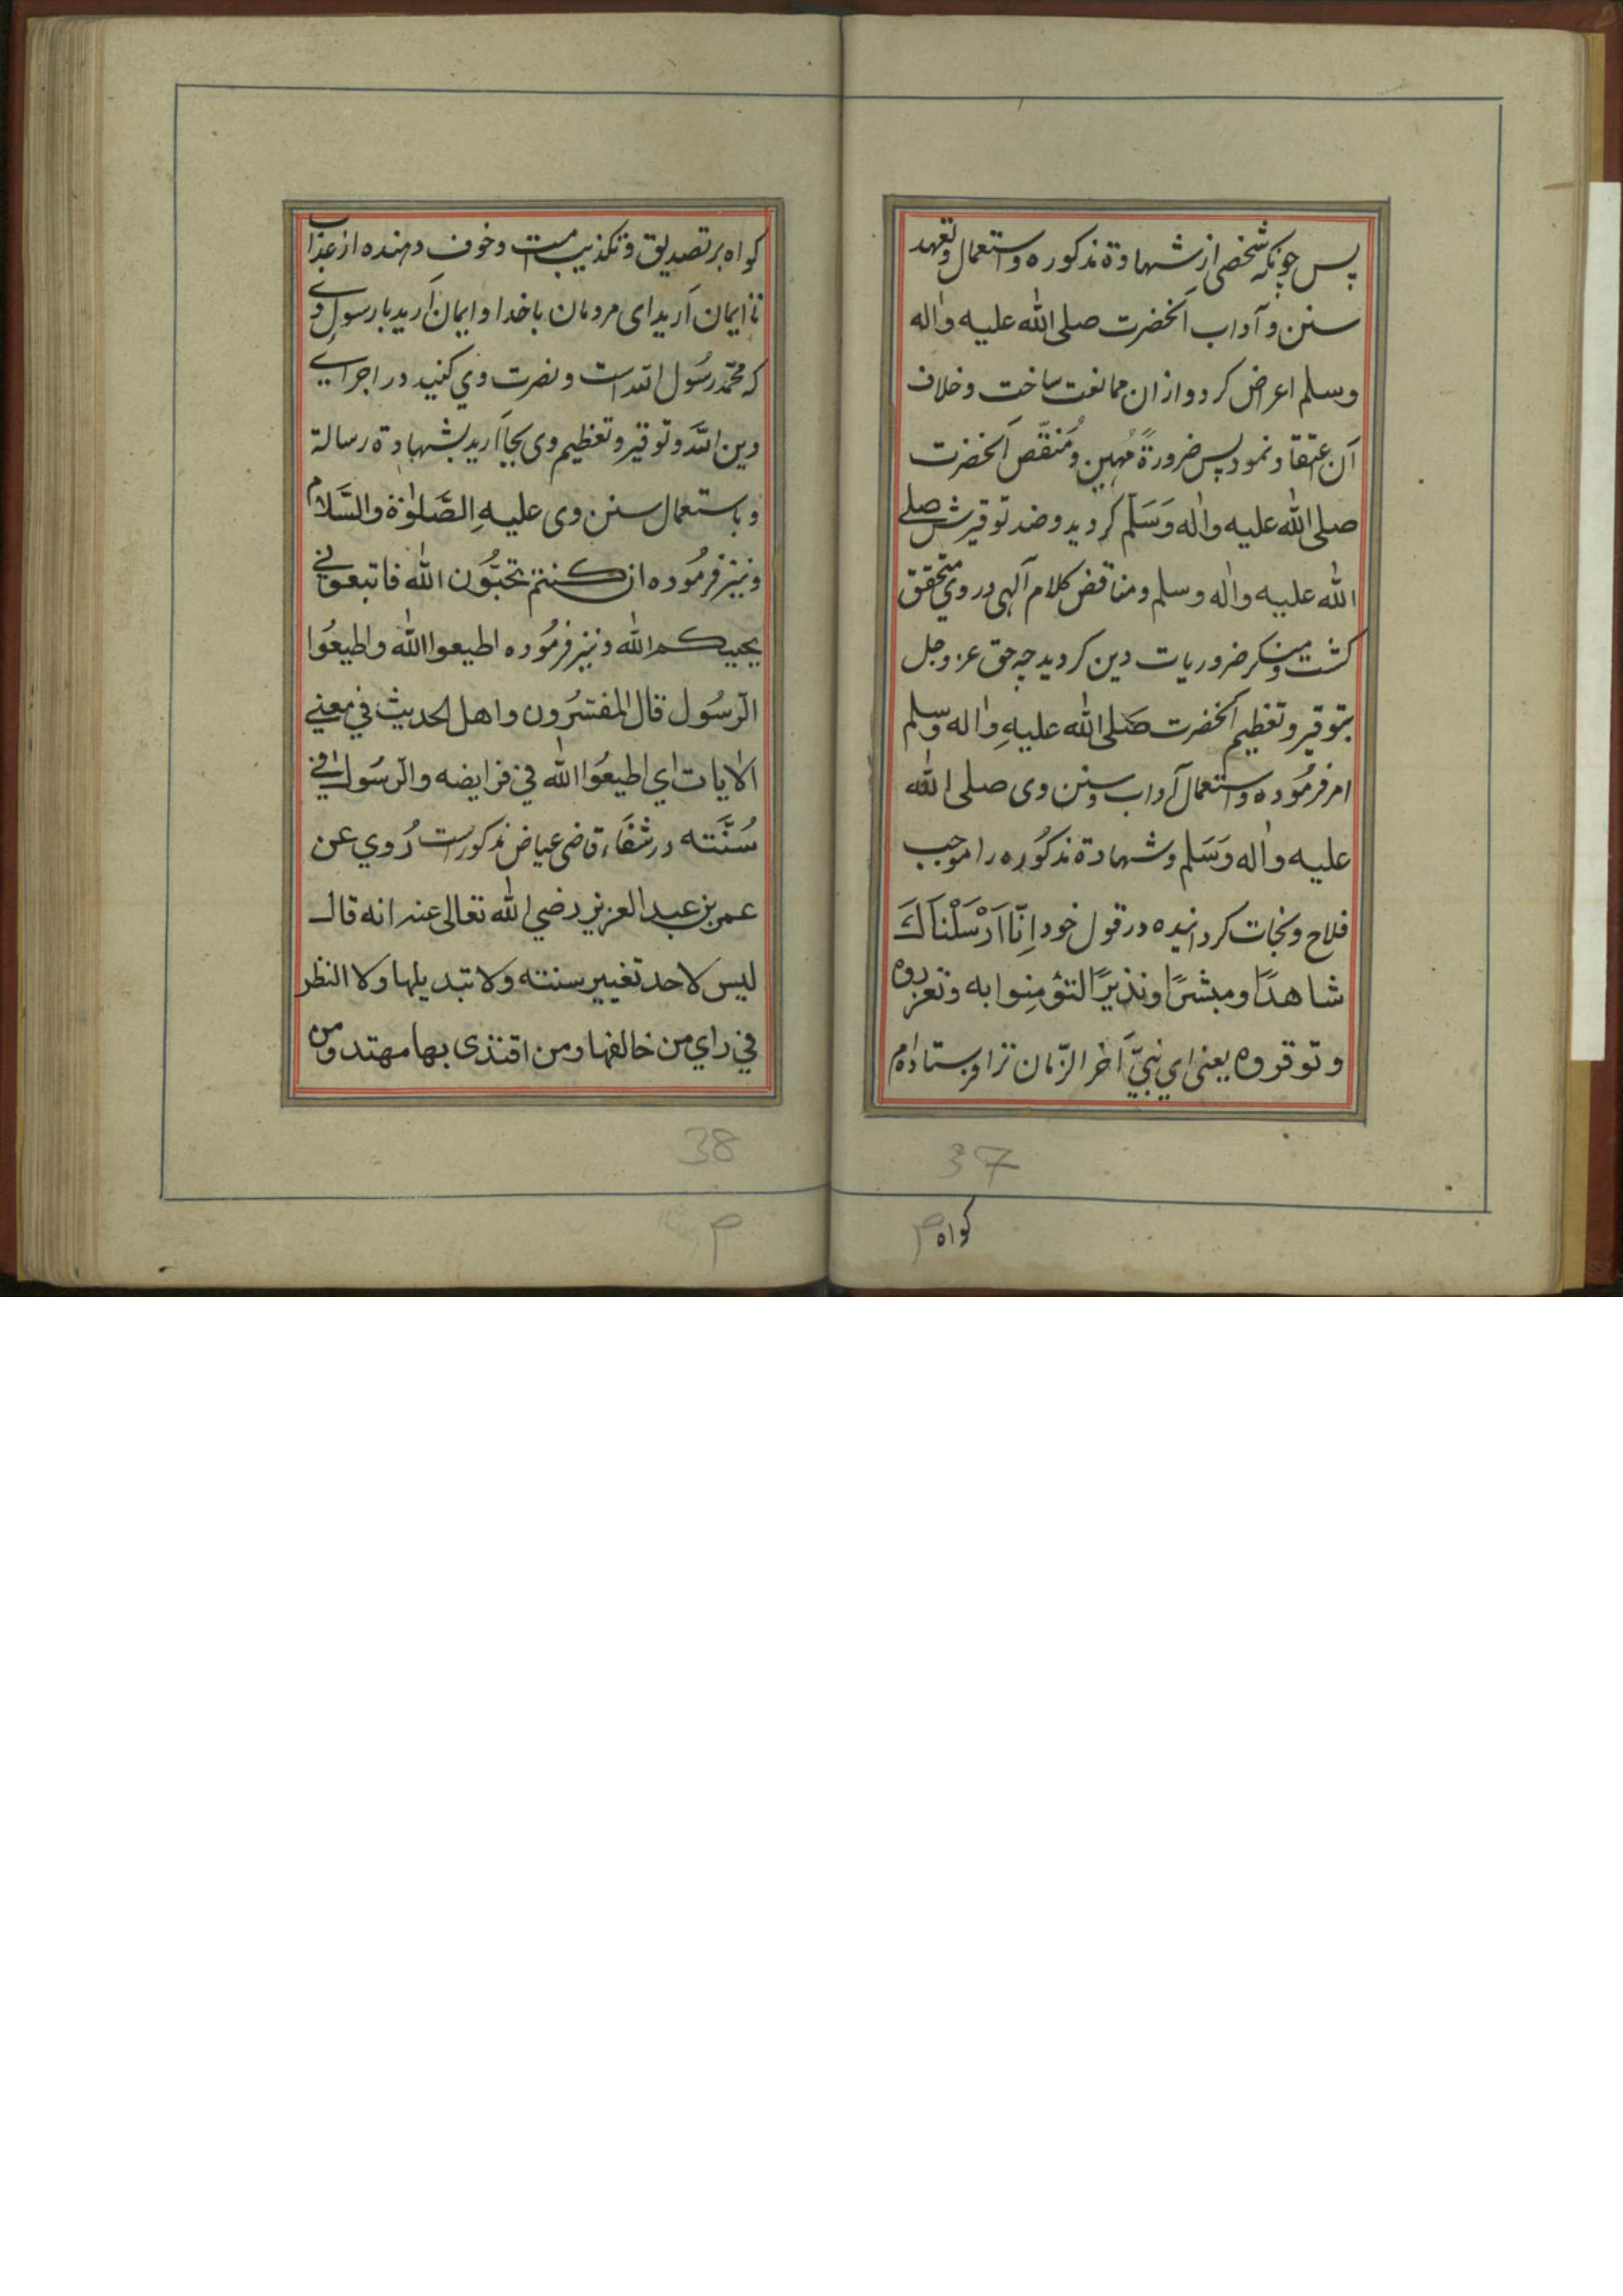 پس چونکه شخصی از شهادة مذکوره و استعمال و تعهد
سنن و آداب آنحضرت صلى الله عليه واله
وسلم اعراض کرد و ازان ممانعت ساخت و خلاف
آن عتقاد نمود پس ضرورةً مُهین و مُنقّص آنحضرت
صلى الله عليه واله وَسَلم کردید و ضد توقیرش صلى
الله عليه واله وسلم و مناقض کلام آلهی در وی متحقق
کشت و منکر ضروریات دین کردید چه حق عز وجل
بتوقیر و تعظیم آنحضرت صَلى الله عليهِ واله وسلم
امر فرمُوده و استعمال آداب و سنن وی صلى الله
عليه واله وَسَلم و شهادة مذکُوره را موجب
فلاح و نجات کردانیده در قول خود اِنّا اَرْسَلْناکَ
شاهدًا ومبشرًا ونذيرًا لتؤمِنوا به وتعزروه
وتوقروه یعنی ای نبیّ آخر الزّمان ترا فرستادهام
37
کواه
م
کواه بر تصدیق و تکذیب امت و خوف دهنده از عذاب
تا ایمان آرید ای مردمان باخدا و ایمان آرید با رسول وے
که محمّد رسُول الله است و نصرت وی کنید در اجراے
دین الله و توقیر و تعظیم وی بجا آرید بشهادة رسالة
و باستعمال سنن وی علیهِ الصَّلوٰة والسَّلام
و نیز فرمُوده ان کنتم تحبُّون الله فاتبعوني
يحببکم الله و نیز فرمُوده اطيعوا الله واطيعُوا
الرسُول قال المفسّرُون واهل الحديث في معنى
الايات اي اطيعُوا الله في فرايضه والرسُول في
سُنَّته در شفَاء قاضی عیاض مذکورست رُوي عن
عمر بن عبد العزيز رضي الله تعالى عنه انه قال
ليس لاحد تغيير سنته ولا تبديلها ولا النظر
في راي من خالفها ومن اقتدى بها مهتد ومن
38
م